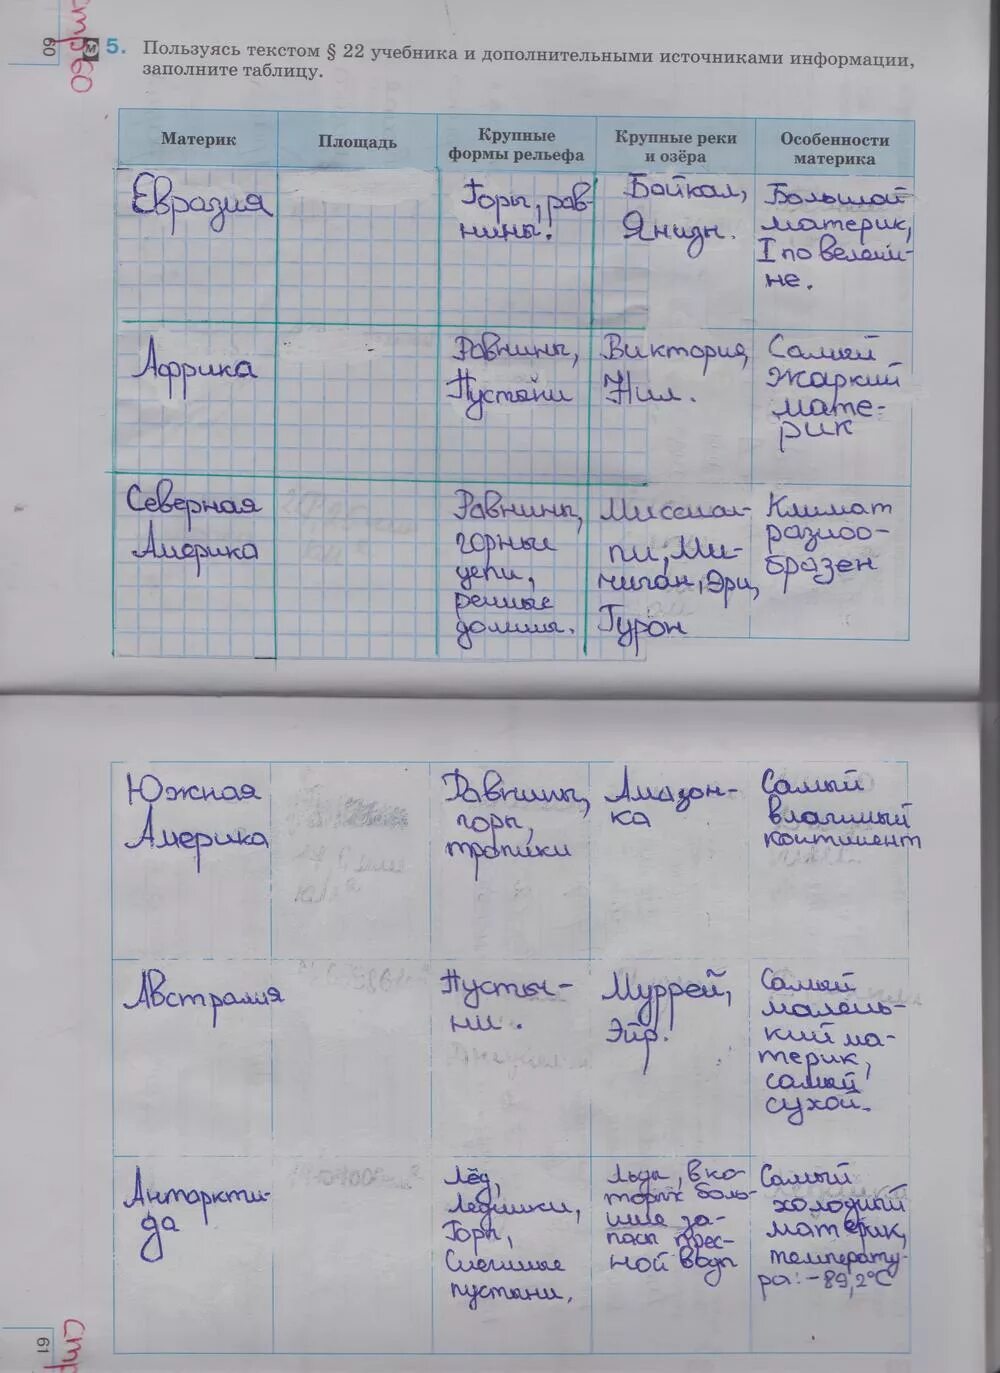 60
стр 60
м 5. Пользуясь текстом § 22 учебника и дополнительными источниками информации,
заполните таблицу.
Материк
Площадь
Крупные
формы рельефа
Крупные реки
и озёра
Особенности
материка
Евразия
Горы, рав-
нины.
Байкал,
Большой
материк,
I по величи-
не.
Африка
Равнины,
Пустыни
Виктория,
Нил.
Самый
жаркий
мате-
рик
Северная
Америка
Равнины,
горные
цепи,
речные
долины.
Миссиси-
пи, Ми-
чиган, Эри,
Гурон
Климат
разноо-
бразен
Южная
Америка
Равнины,
горы,
тропики
Амазон-
ка
Самый
влажный
континент
Австралия
Пусты-
ни.
Муррей,
Эйр.
Самый
малень-
кий ма-
терик,
самый
сухой.
Антаркти-
да
Лёд,
Ледники,
Горы,
Снежные
пустыни.
Льды, в ко-
торых боль-
шие за-
пасы прес-
ной воды
Самый
холодный
материк,
температу-
ра: -89,2°C
61
стр